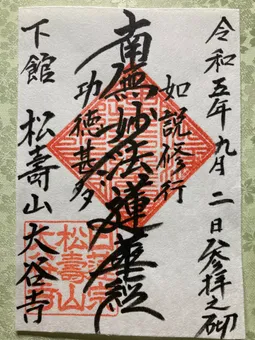 令和五年九月二日参拝之砌
如説修行
南無妙法蓮華経
功徳甚多
下館 松壽山 大谷寺
日蓮宗
松壽山